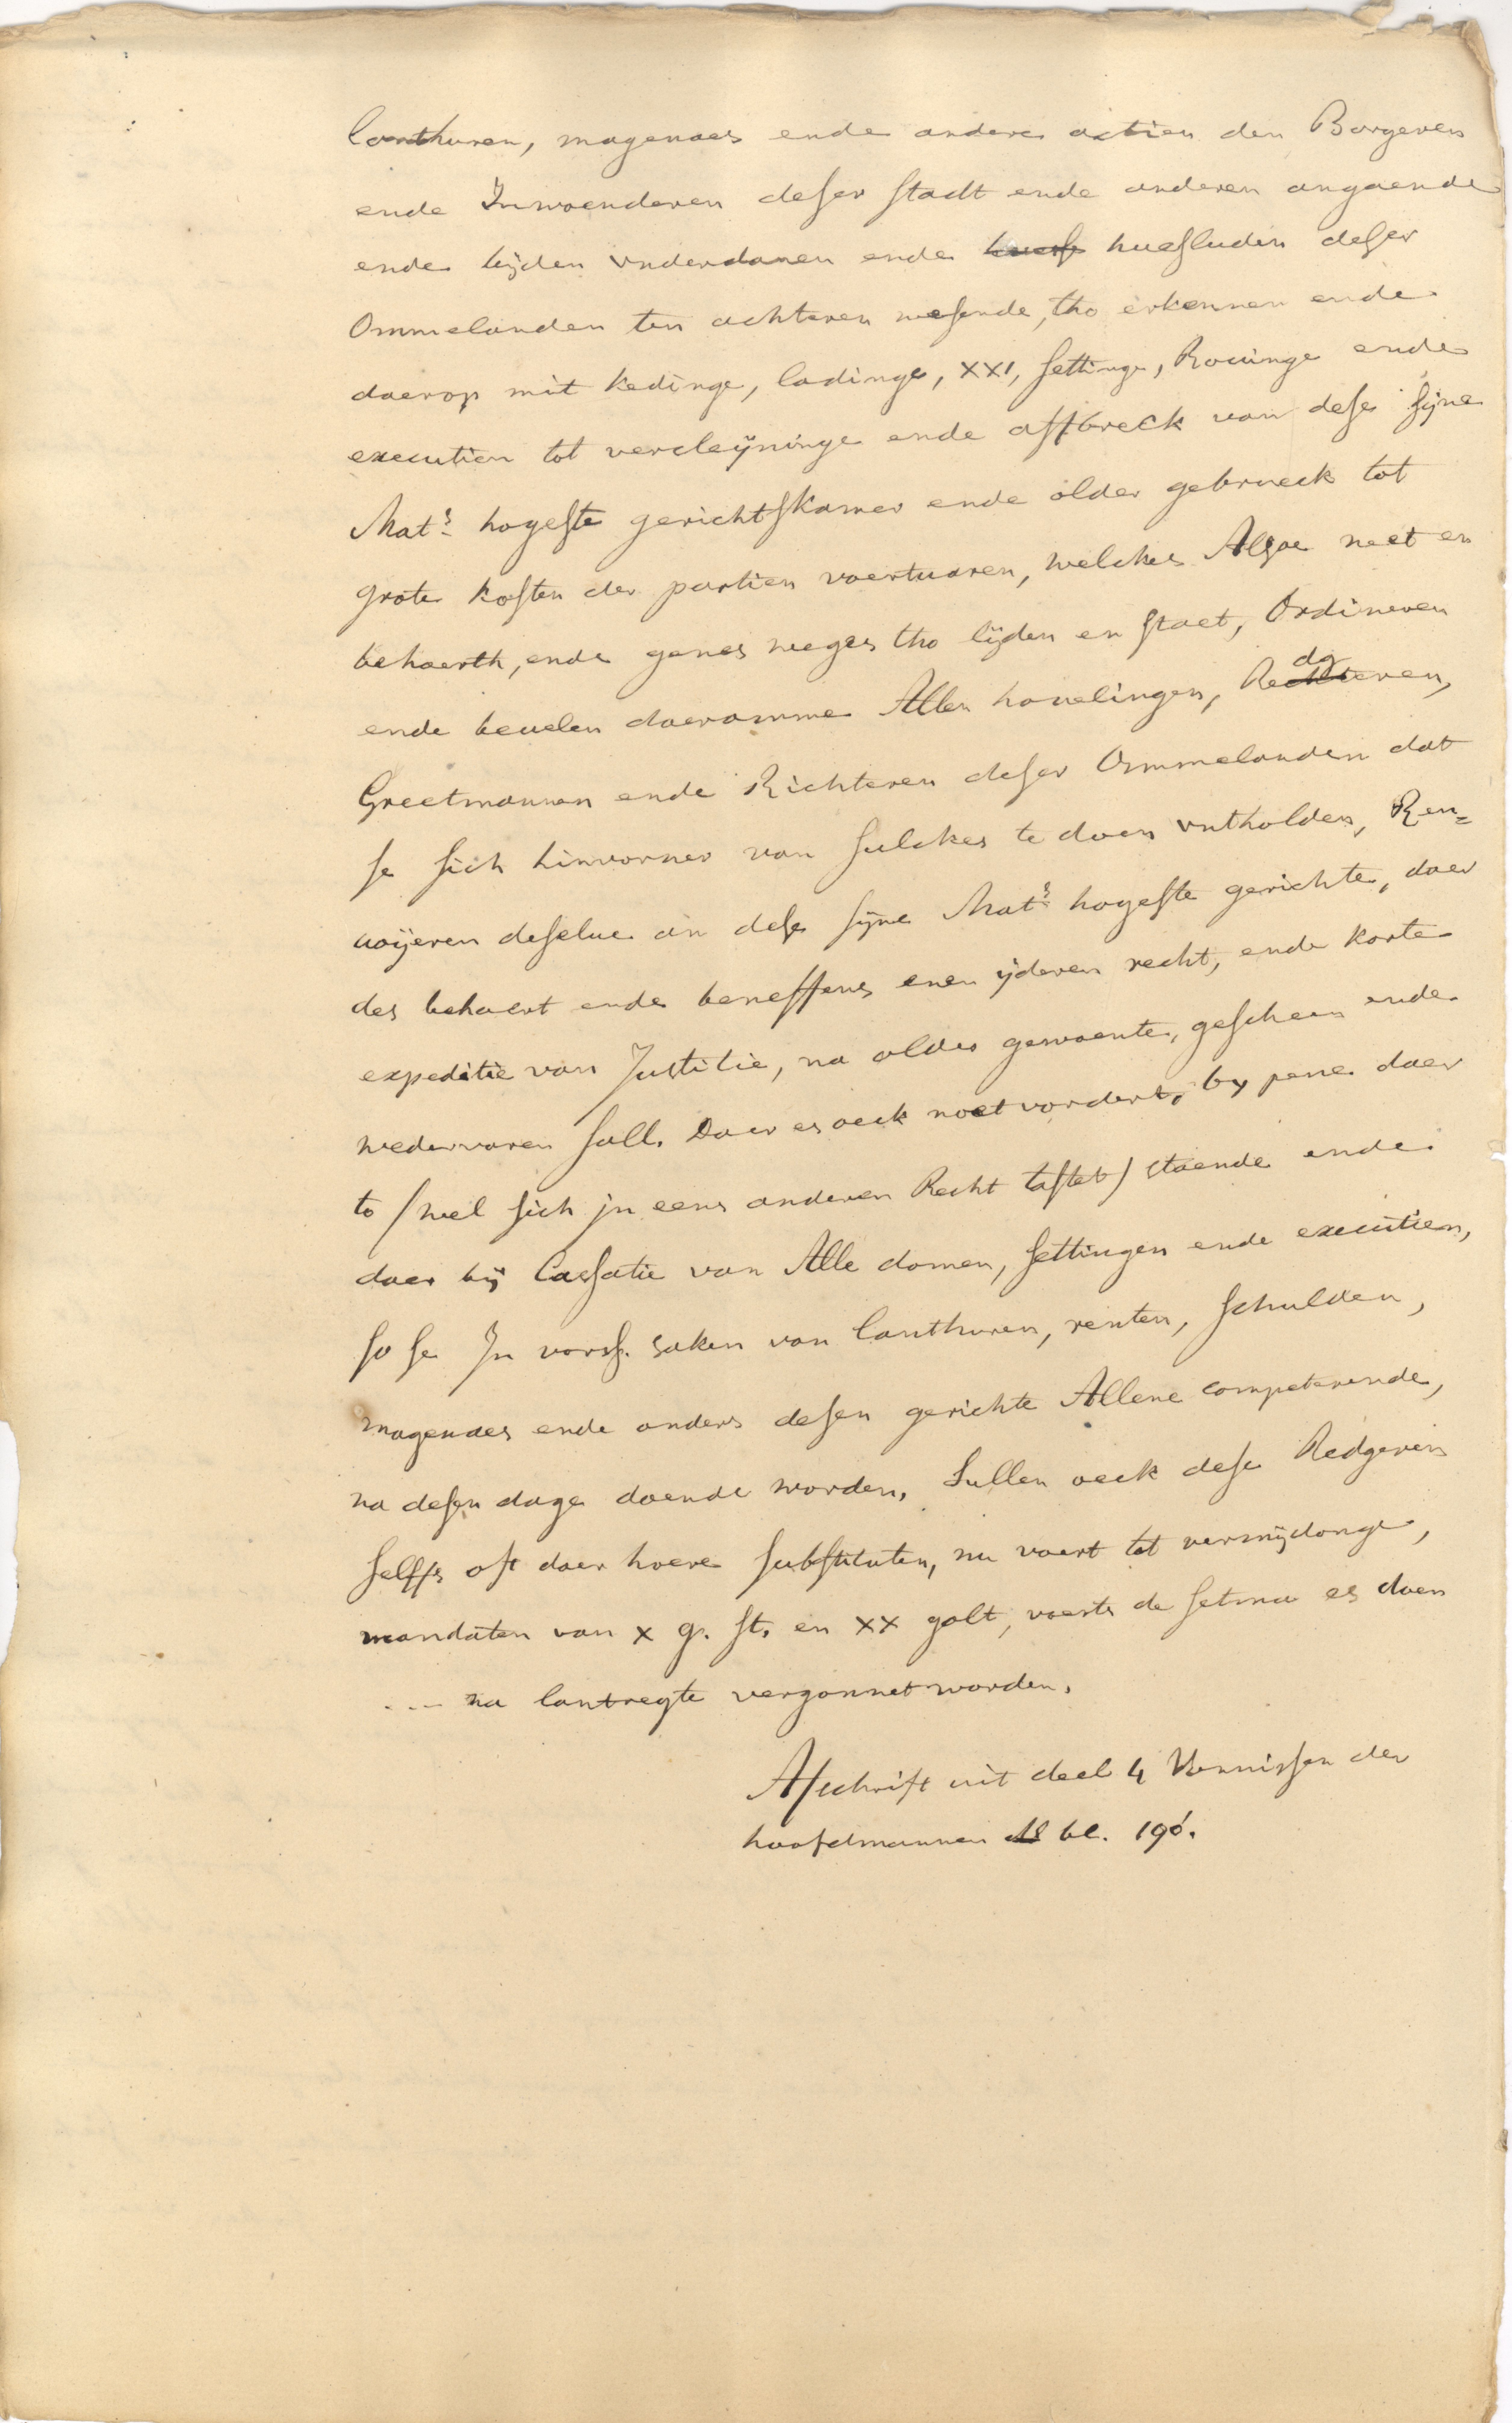 lanthuren, magenaes ende andere actien den Borgeren
ende Inwoenderen deser stadt ende anderen angaende
ende bijden vnderdanen ende huesf huesluden deser
Ommelanden ten achteren wesende, tho erkennen ende
daerop mit kedinge, ladinge, XXI, settinge, Rouinge ende
executien tot vercleijninge ende affbreck van dese sijne
Mat.s hogeste gerichtskamer ende older gebrueck tot
grote kosten der partien voertuaren, welckes Alsoe neet en
behoerth, ende genes weges tho lijden en staet, Ordineren
ende beuelen daeromme Allen houelingen, Redgeren,
Greetmannen ende Richteren deser Ommelanden dat
se sich hinvorner van sulckes te doen vntholden, Ren=
uoijeren deselue an dese sijne Mat.s hogeste gerichte, daer
des behoert ende beneffens enen ijderen recht, ende korte
expeditie van Justitie, na older gewoente, gescheen ende
wedervaren sall. Daer es oeck noet vordert, by pene daer
to / wel sich jn eens anderen Recht tastet / staende ende
daer bij Cassatie van Alle domen, settingen ende executien,
so se In vors. saken van lanthuren, renten, schulden,
magenaes ende anders desen gerichte Allene competerende,
na desen dage doende worden. Sullen oeck dese Redgeren
selffs oft daer hoere substituten, nu voert tot vermijdonge,
mandaten van x g. st. en xx golt, voerts de setma es doen
... na lantregte vergonnet worden.
Afschrift uit deel 4 Vonnissen der
hoofdmannen bl. 196.